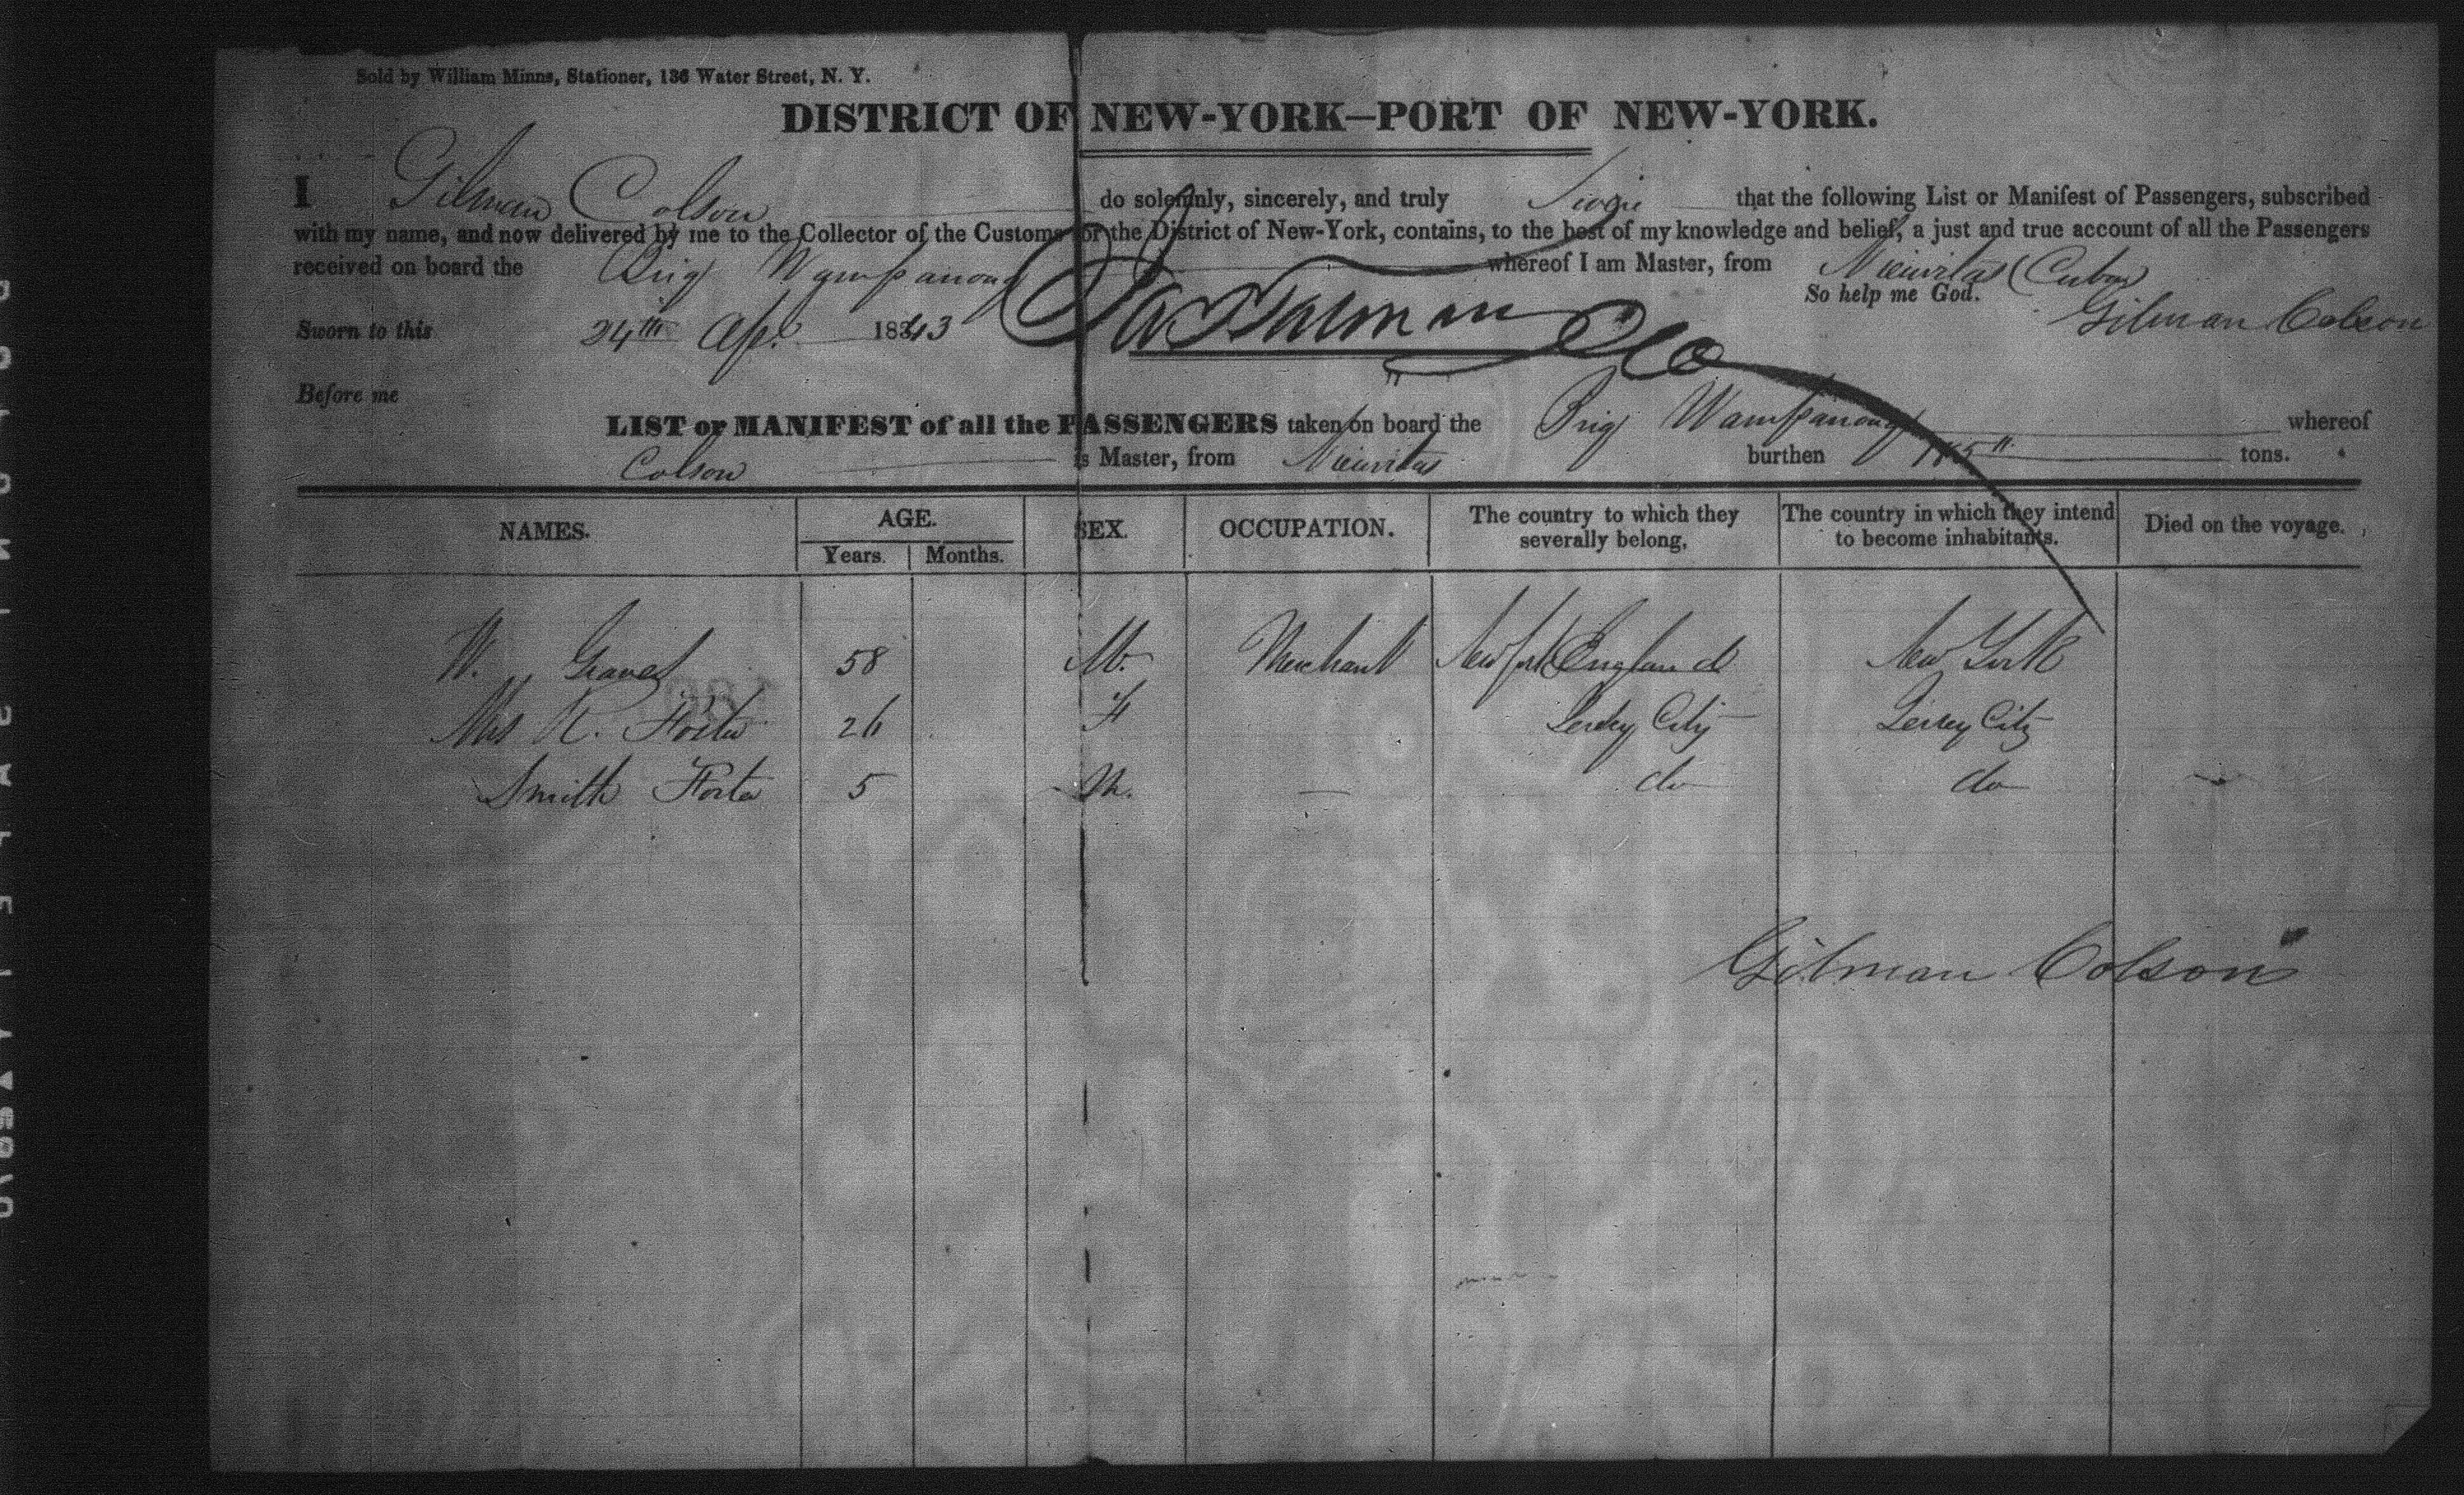 Sold by William Minns, Stationer, 136 Water Street, N. Y.
DISTRICT OF NEW-YORK—PORT OF NEW-YORK.
I Gilman Colson do solemnly, sincerely, and truly that the following List or Manifest of Passengers, subscribed
with my name, and now delivered by me to the Collector of the Customs for the District of New-York, contains, to the best of my knowledge and belief, a just and true account of all the Passengers
received on board the Brig Wampanoag whereof I am Master, from Nuevitas (Cuba)
So help me God.
Sworn to this 24th Apl. 1843 Gilman Colson
Before me
LIST or MANIFEST of all the PASSENGERS taken on board the Brig Wampanoag whereof
Colson is Master, from Nuevitas burthen tons.
NAMES. AGE. SEX. OCCUPATION. The country to which they severally belong, The country in which they intend to become inhabitants. Died on the voyage.
Years. Months.
W. Graves 58 M. Merchant England New York
Mrs R. Foster 26 F Jersey City Jersey City
Smith Foster 5 M. — do do
Gilman Colson